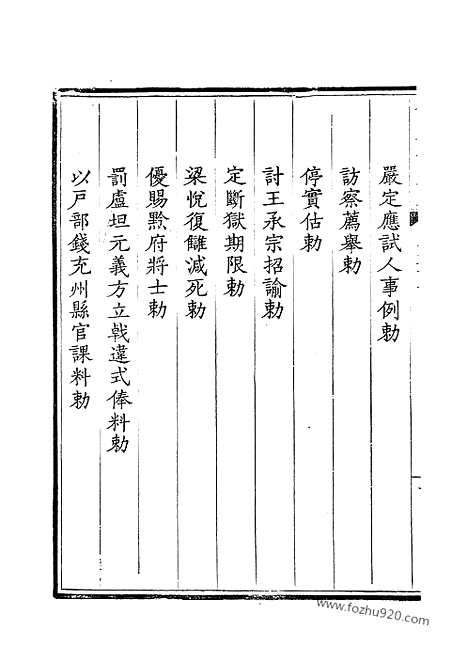 嚴定應試人事例勅
訪察薦舉勅
停實估勅
討王承宗招諭勅
定斷獄期限勅
梁悅復讎減死勅
優賜黔府將士勅
罰盧坦元義方立戟違式俸料勅
以戸部錢充州縣官課料勅
www.fozhu920.com